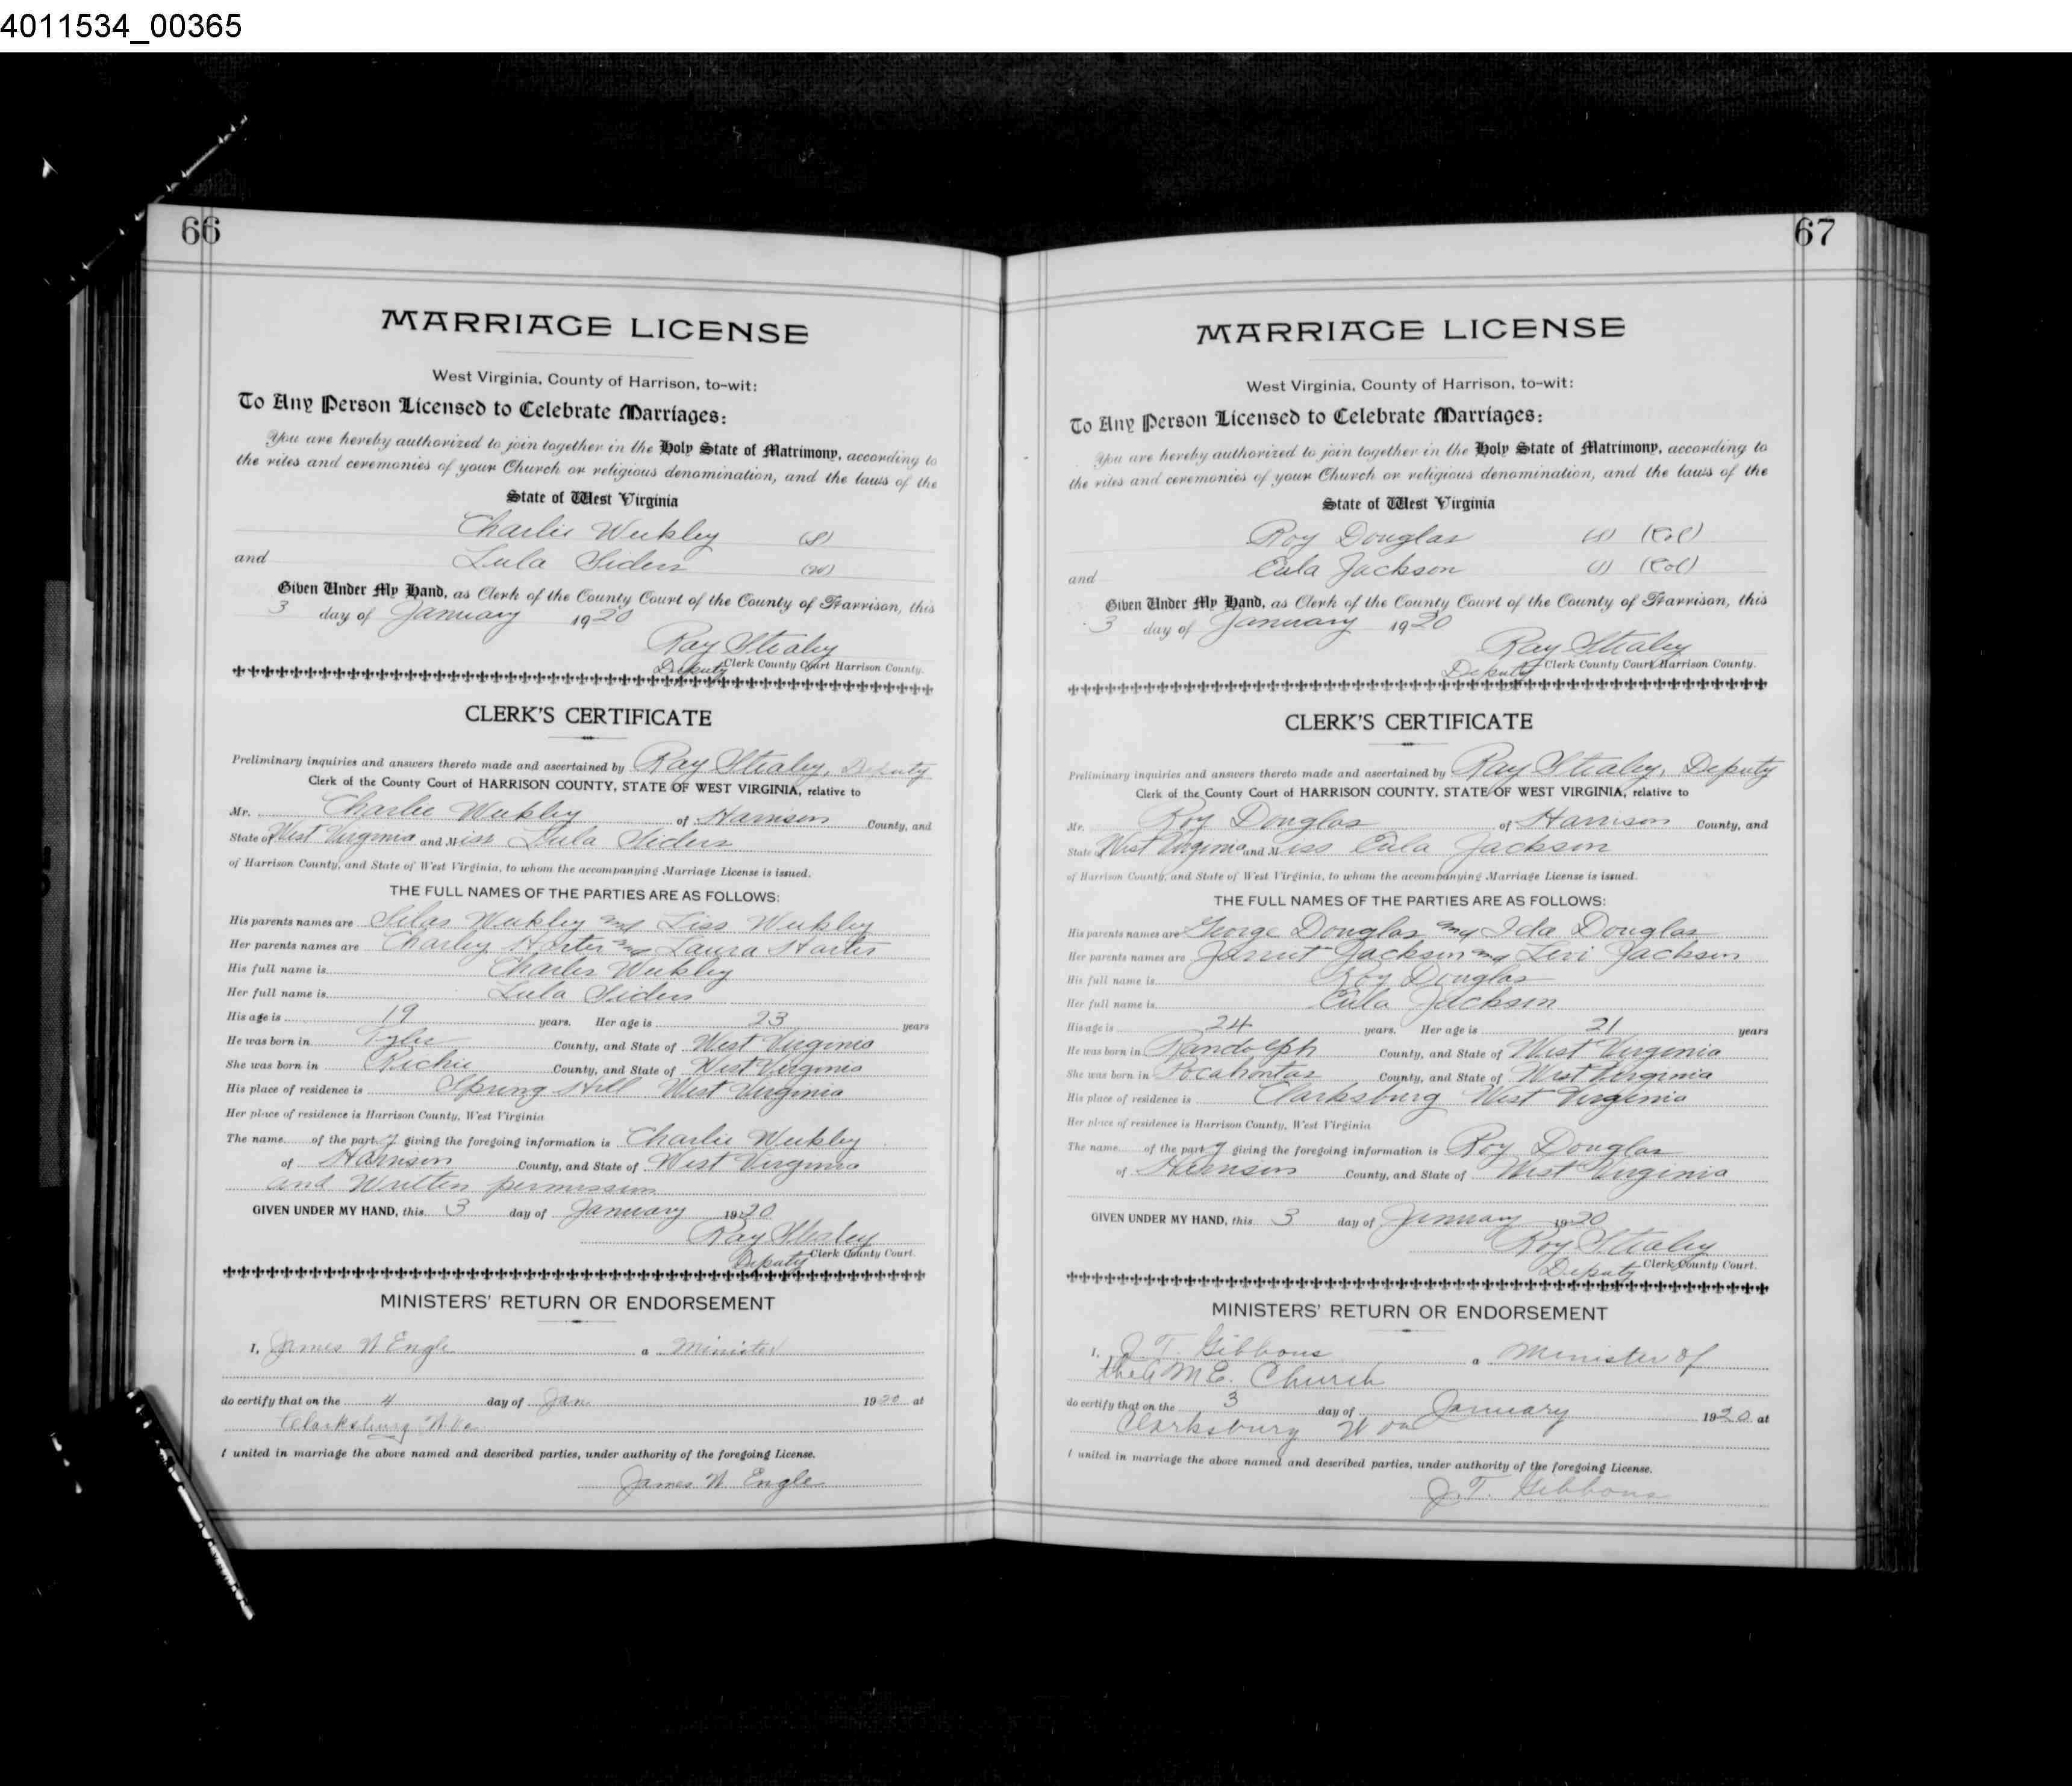 4011534_00365
66
MARRIAGE LICENSE
West Virginia, County of Harrison, to-wit:
To Any Person Licensed to Celebrate Marriages:
You are hereby authorized to join together in the Holy State of Matrimony, according to
the rites and ceremonies of your Church or religious denomination, and the laws of the
State of West Virginia
Charlie Weekley (S)
and Lula Siders (W)
Given Under My Hand, as Clerk of the County Court of the County of Harrison, this
3 day of January 1920
Ray Staley
Deputy Clerk County Court Harrison County.
CLERK'S CERTIFICATE
Preliminary inquiries and answers thereto made and ascertained by Ray Staley, Deputy
Clerk of the County Court of HARRISON COUNTY, STATE OF WEST VIRGINIA, relative to
Mr. Charlie Weekley of Harrison County, and
State of West Virginia and Miss Lula Siders
of Harrison County, and State of West Virginia, to whom the accompanying Marriage License is issued.
THE FULL NAMES OF THE PARTIES ARE AS FOLLOWS:
His parents names are Silas Weekley and Liss Weekley
Her parents names are Charley Harter and Laura Harter
His full name is Charlie Weekley
Her full name is Lula Siders
His age is 19 years. Her age is 23 years
He was born in Tyler County, and State of West Virginia
She was born in Richie County, and State of West Virginia
His place of residence is Spring Hill West Virginia
Her place of residence is Harrison County, West Virginia
The name of the party giving the foregoing information is Charlie Weekley
of Harrison County, and State of West Virginia
and Written permission
GIVEN UNDER MY HAND, this 3 day of January 1920
Ray Staley
Deputy Clerk County Court.
MINISTERS' RETURN OR ENDORSEMENT
I, James W Engle a Minister
do certify that on the 4 day of Jan. 1920 at
Clarksburg W Va
I united in marriage the above named and described parties, under authority of the foregoing License.
James W Engle
67
MARRIAGE LICENSE
West Virginia, County of Harrison, to-wit:
To Any Person Licensed to Celebrate Marriages:
You are hereby authorized to join together in the Holy State of Matrimony, according to
the rites and ceremonies of your Church or religious denomination, and the laws of the
State of West Virginia
Roy Douglas (S) (Col)
and Eula Jackson (S) (Col)
Given Under My Hand, as Clerk of the County Court of the County of Harrison, this
3 day of January 1920
Ray Staley
Deputy Clerk County Court Harrison County.
CLERK'S CERTIFICATE
Preliminary inquiries and answers thereto made and ascertained by Ray Staley, Deputy
Clerk of the County Court of HARRISON COUNTY, STATE OF WEST VIRGINIA, relative to
Mr. Roy Douglas of Harrison County, and
State of West Virginia and Miss Eula Jackson
of Harrison County, and State of West Virginia, to whom the accompanying Marriage License is issued.
THE FULL NAMES OF THE PARTIES ARE AS FOLLOWS:
His parents names are George Douglas and Ida Douglas
Her parents names are Jackson and Levi Jackson
His full name is Roy Douglas
Her full name is Eula Jackson
His age is 24 years. Her age is 21 years
He was born in Randolph County, and State of West Virginia
She was born in Pocahontas County, and State of West Virginia
His place of residence is Clarksburg West Virginia
Her place of residence is Harrison County, West Virginia
The name of the party giving the foregoing information is Roy Douglas
of Harrison County, and State of West Virginia
GIVEN UNDER MY HAND, this 3 day of January 1920
Ray Staley
Deputy Clerk County Court.
MINISTERS' RETURN OR ENDORSEMENT
I, J. T. Gibbons a Minister of
the A M E. Church
do certify that on the 3 day of January 1920 at
Clarksburg W va
I united in marriage the above named and described parties, under authority of the foregoing License.
J. T. Gibbons